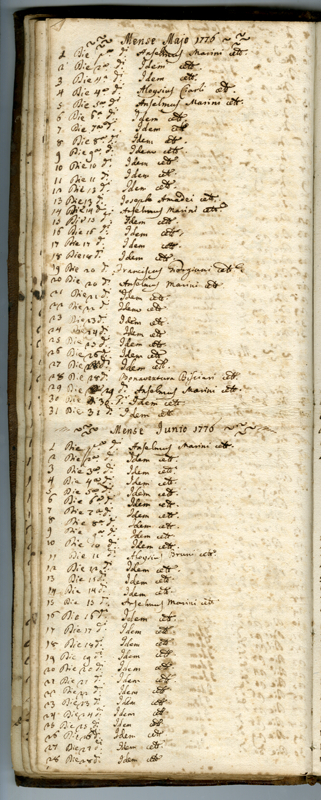 Mense Majo 1776
1 Die 1ª dº Anselmus Marini cet.
2 Die 2ª dº Idem cet.
3 Die 3ª dº Idem cet.
4 Die 4ª dº Aloysius Carli cet.
5 Die 5ª dº Anselmus Marini cet.
6 Die 6ª dº Idem cet.
7 Die 7ª dº Idem cet.
8 Die 8ª dº Idem cet.
9 Die 9ª dº Idem cet.
10 Die 10 dº Idem cet.
11 Die 11 dº Idem cet.
12 Die dº Idem cet.
13 Die 13 dº Joseph Amadei cet.
14 Die 14 dº Anselmus Marini cet.
15 Die 15 dº Idem cet.
16 Die 16 dº Idem cet.
17 Die 17 dº Idem cet.
18 Die 18 dº Idem cet.
19 Die dº Franciscus cet.
20 Die 20 dº Anselmus Marini cet.
21 Die 21 dº Idem cet.
22 Die 22 dº Idem cet.
23 Die 23 dº Idem cet.
24 Die 24 dº Idem cet.
25 Die 25 dº Idem cet.
26 Die 26 dº Idem cet.
27 Die dº Idem cet.
28 Die 28 dº Bonaventura cet.
29 Die 29 dº Anselmus Marini cet.
30 Die 30 dº Idem cet.
31 Die 31 dº Idem cet.
Mense Junio 1776
1 Die dº Anselmus Marini cet.
2 Die 2ª dº Idem cet.
3 Die 3ª dº Idem cet.
4 Die 4ª dº Idem cet.
5 Die 5ª dº Idem cet.
6 Die 6ª dº Idem cet.
7 Die 7ª dº Idem cet.
8 Die 8ª dº Idem cet.
9 Die dº Idem cet.
10 Die dº Idem cet.
11 Die 11 dº Aloysius Bruni cet.
12 Die 12 dº Idem cet.
13 Die 13 dº Idem cet.
14 Die 14 dº Idem cet.
15 Die 15 dº Anselmus Marini cet.
16 Die 16 dº Idem cet.
17 Die 17 dº Idem cet.
18 Die 18 dº Idem cet.
19 Die 19 dº Idem cet.
20 Die 20 dº Idem cet.
21 Die 21 dº Idem cet.
22 Die 22 dº Idem cet.
23 Die 23 dº Idem cet.
24 Die 24 dº Idem cet.
25 Die 25 dº Idem cet.
26 Die 26 dº Idem cet.
27 Die 27 dº Idem cet.
28 Die 28 dº Idem cet.